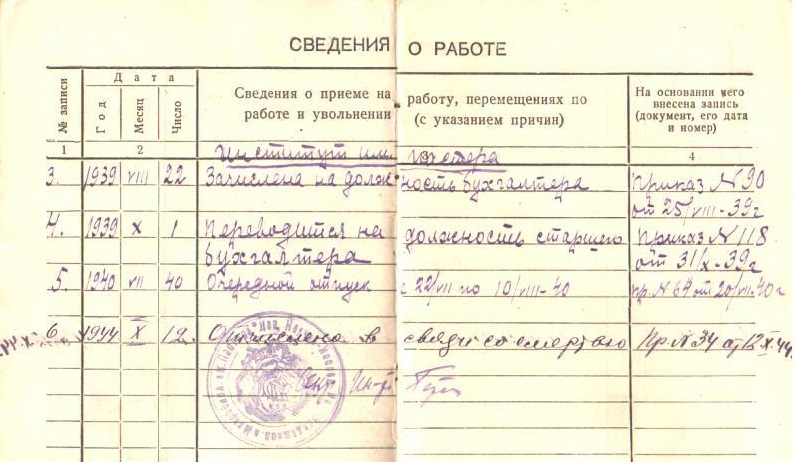 СВЕДЕНИЯ О РАБОТЕ
№ записи
Дата
Год
Месяц
Число
Сведения о приеме на работу, перемещениях по
работе и увольнении (с указанием причин)
На основании чего
внесена запись
(документ, его дата
и номер)
1 2 3 4
Институт им. Пастера
3. 1939 VIII 22 Зачислена на должность бухгалтера Приказ N 90
от 25/VIII-39г
4. 1939 X 1 Переводится на должность старшего Приказ N 118
бухгалтера от 31/X-39г
5. 1940 VII 40 Очередной отпуск с 22/VII по 10/VIII-40 пр. N 64 от 20/VII-40г
6 1944 X 12. Отчислена в связи со смертью Пр. N 34 от 12 X.44.
Секр. Ин-та